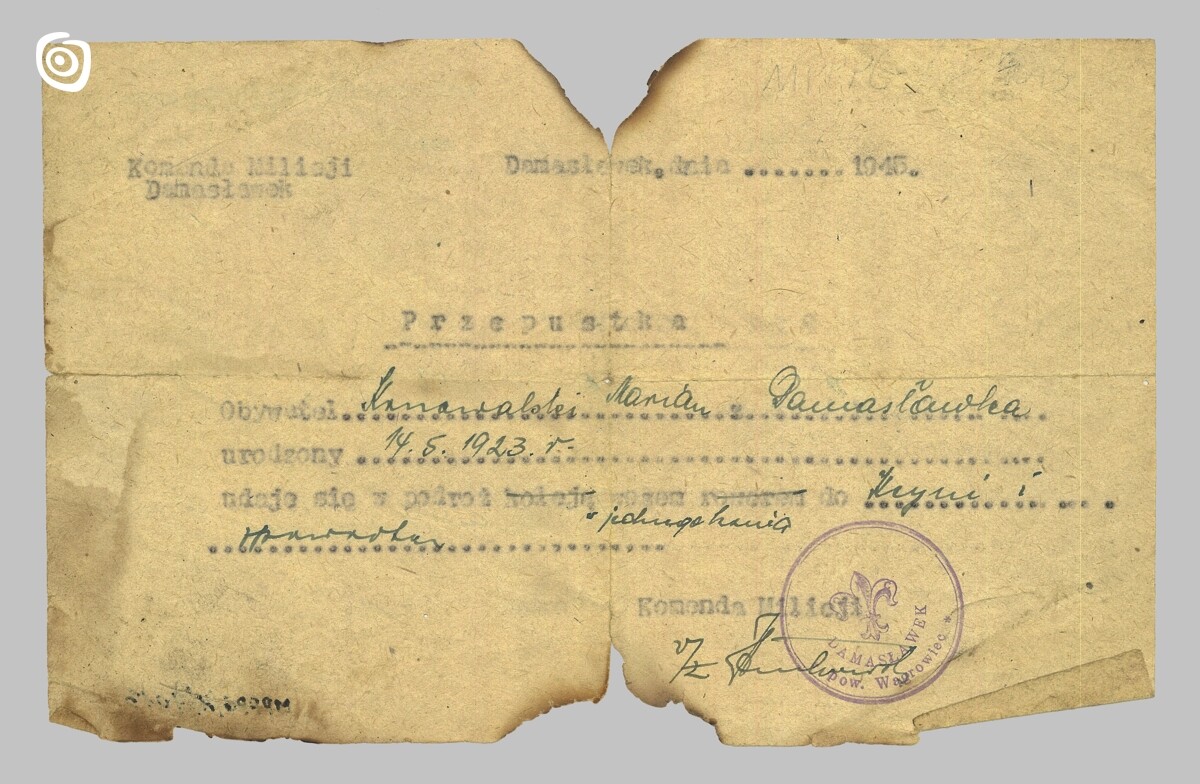 Komenda Milicji
Damasławek
Damasławek, dnia ........ 1945.
Przepustka
Obywatel Konowalski Marian z Damasławka
urodzony 14.5.1923.r.
udaje się w podroż koleją wozem rowerem do Kcyni i
" jednego konia
spowrotem
Komenda Milicji
v/z
DAMASŁAWEK
pow. Wągrowiec *